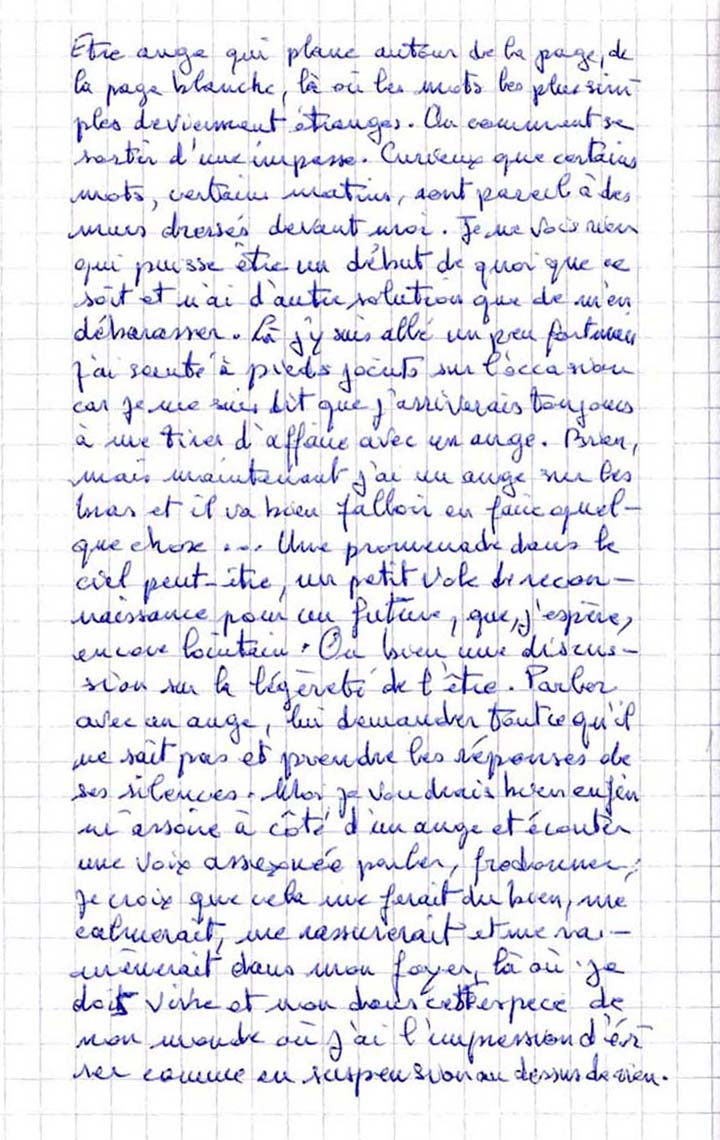 Etre ange qui plane autour de la page, de
la page blanche, là où les mots les plus sim
ples deviennent étranges. Ou comment se
sortir d'une impasse. Curieux que certains
mots, certains matins, sont pareil à des
murs dressés devant moi. Je ne vois rien
qui puisse être un début de quoi que ce
soit et n'ai d'autre solution que de m'en
débarasser. Là j'y suis allé un peu fort mais
j'ai sauté à pieds joints sur l'occasion
car je me suis dit que j'arriverais toujours
à me tirer d'affaire avec un ange. Bien,
mais maintenant j'ai un ange sur les
bras et il va bien falloir en faire quel-
que chose ... Une promenade dans le
ciel peut-être, un petit vole de recon-
naissance pour un future, que, j'espère,
encore lointain. Ou bien une discus-
sion sur la légèreté de l'être. Parler
avec un ange, lui demander tout ce qu'il
ne sait pas et prendre les réponses de
ses silences. Moi je voudrais bien enfin
m'assoire à côté d'un ange et écouter
une voix assexuée parler, fredonner,
je croix que cela me ferait du bien, me
calmerait, me rassurerait et me ra-
mènerait dans mon foyer, là où je
dois vivre et non dans cette espece de
non monde où j'ai l'impression d'éxis
ter comme en suspension au dessus de rien.